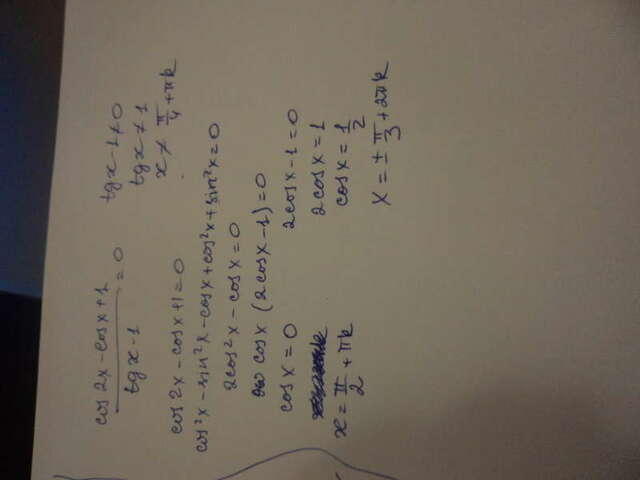 cos2x-cosx+1 / tgx-1 =0
tgx-1≠0
tgx≠1
x≠π/4+πk
cos2x-cosx+1=0
cos²x-sin²x-cosx+cos²x+sin²x=0
2cos²x-cosx=0
cosx(2cosx-1)=0
cosx=0
x=π/2+πk
2cosx-1=0
2cosx=1
cosx=1/2
x=±π/3+2πk